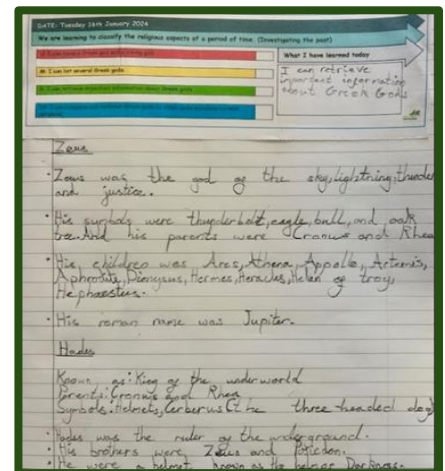 DATE: Tuesday 16th January 2024
We are learning to classify the religious aspects of a period of time. (Investigating the past)
What I have learned today
I can retrieve
important information
about Greek Gods
M: I can list several Greek gods.
important information about Greek Gods
Zeus
• Zeus was the god of the sky, lightning, thunder
and justice.
• His symbols were thunderbolt, eagle, bull, and oak
tree. And his parents were Cronus and Rhea
• His children was Ares, Athena, Appollo, Artemis,
Aphrodite, Dionysus, Hermes, Heracles, Helen of troy,
Hephaestus.
• His roman name was Jupiter.
Hades
Known as: King of the underworld
Parents: Cronus and Rhea
Symbols: Helmets, Cerberus (the three headed dog)
• Hades was the ruler of the underground.
• His brothers were Zeus and
• He wore a helmet known as the
Darkness.